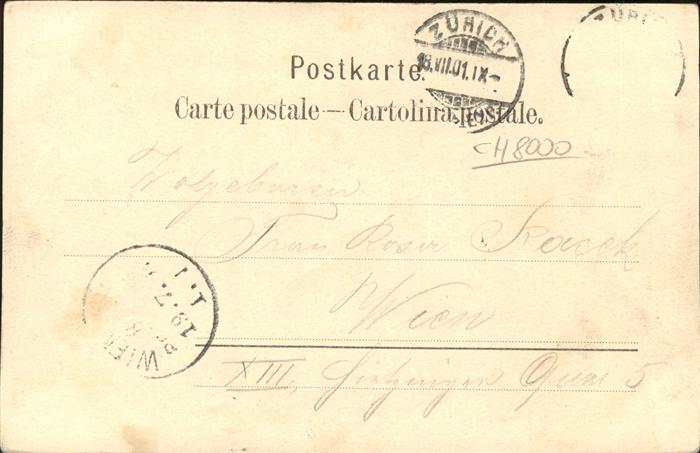 ZÜRICH
18.VII.01.IX-
ZÜRI
Postkarte.
Carte postale — Cartolina postale.
CH 8000
Wolgeboren
Frau Rosa
Wien
XIII, Hietzinger Quai 5
WIEN
19.7.